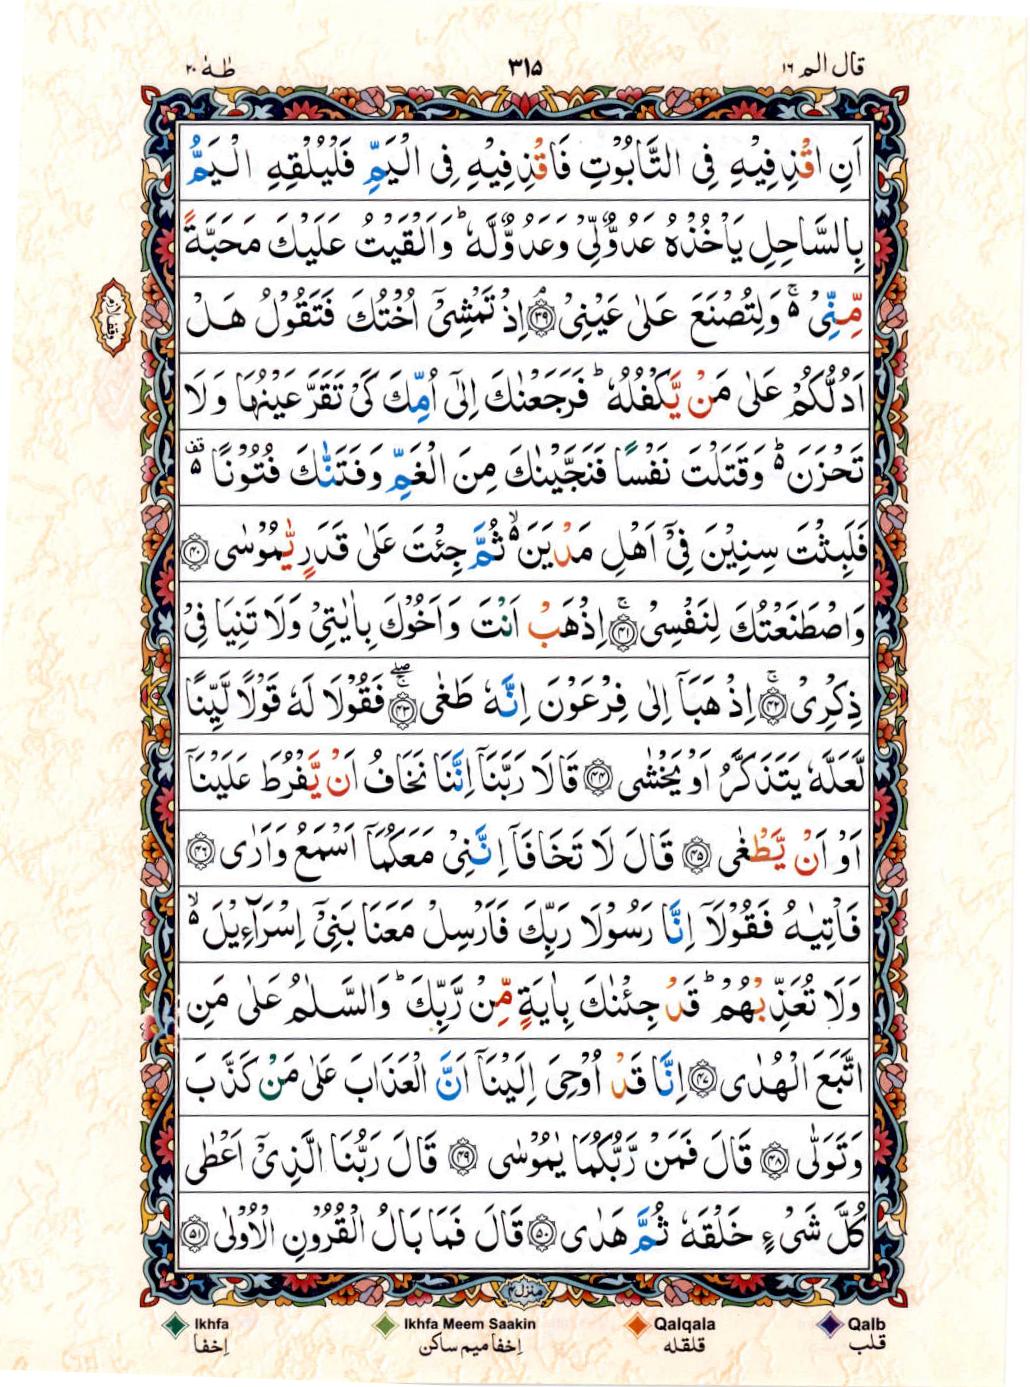 قال الم ١٦
٣١٥
طٰهٰ ٢٠
اَنِ اقْذِفِيْهِ فِى التَّابُوْتِ فَاقْذِفِيْهِ فِى الْيَمِّ فَلْيُلْقِهِ الْيَمُّ
بِالسَّاحِلِ يَاْخُذْهُ عَدُوٌّ لِّىْ وَعَدُوٌّ لَّهٗ ؕ وَاَلْقَيْتُ عَلَيْكَ مَحَبَّةً
مِّنِّىْ ۵ۚ وَلِتُصْنَعَ عَلٰى عَيْنِىْ ۘ﴿۳۹﴾ اِذْ تَمْشِىْۤ اُخْتُكَ فَتَقُوْلُ هَلْ
وقف لازم
اَدُلُّكُمْ عَلٰى مَنْ يَّكْفُلُهٗ ؕ فَرَجَعْنٰكَ اِلٰٓى اُمِّكَ كَىْ تَقَرَّ عَيْنُهَا وَلَا
تَحْزَنَ ۵ؕ وَقَتَلْتَ نَفْسًا فَنَجَّيْنٰكَ مِنَ الْغَمِّ وَفَتَنّٰكَ فُتُوْنًا ۵قف
فَلَبِثْتَ سِنِيْنَ فِىْۤ اَهْلِ مَدْيَنَ ۵ۙ ثُمَّ جِئْتَ عَلٰى قَدَرٍ يّٰمُوْسٰى ﴿۴۰﴾
وَاصْطَنَعْتُكَ لِنَفْسِىْ ۚ﴿۴۱﴾ اِذْهَبْ اَنْتَ وَاَخُوْكَ بِاٰيٰتِىْ وَلَا تَنِيَا فِىْ
ذِكْرِىْ ۚ﴿۴۲﴾ اِذْهَبَاۤ اِلٰى فِرْعَوْنَ اِنَّهٗ طَغٰى ۚۖ﴿۴۳﴾ فَقُوْلَا لَهٗ قَوْلًا لَّيِّنًا
لَّعَلَّهٗ يَتَذَكَّرُ اَوْ يَخْشٰى ﴿۴۴﴾ قَالَا رَبَّنَاۤ اِنَّنَا نَخَافُ اَنْ يَّفْرُطَ عَلَيْنَاۤ
اَوْ اَنْ يَّطْغٰى ﴿۴۵﴾ قَالَ لَا تَخَافَاۤ اِنَّنِىْ مَعَكُمَاۤ اَسْمَعُ وَاَرٰى ﴿۴۶﴾
فَاْتِيٰهُ فَقُوْلَاۤ اِنَّا رَسُوْلَا رَبِّكَ فَاَرْسِلْ مَعَنَا بَنِىْۤ اِسْرَآءِيْلَ ۵ۙ
وَلَا تُعَذِّبْهُمْ ؕ قَدْ جِئْنٰكَ بِاٰيَةٍ مِّنْ رَّبِّكَ ؕ وَالسَّلٰمُ عَلٰى مَنِ
اتَّبَعَ الْهُدٰى ﴿۴۷﴾ اِنَّا قَدْ اُوْحِىَ اِلَيْنَاۤ اَنَّ الْعَذَابَ عَلٰى مَنْ كَذَّبَ
وَتَوَلّٰى ﴿۴۸﴾ قَالَ فَمَنْ رَّبُّكُمَا يٰمُوْسٰى ﴿۴۹﴾ قَالَ رَبُّنَا الَّذِىْۤ اَعْطٰى
كُلَّ شَىْءٍ خَلْقَهٗ ثُمَّ هَدٰى ﴿۵۰﴾ قَالَ فَمَا بَالُ الْقُرُوْنِ الْاُوْلٰى ﴿۵۱﴾
منزل۴
Ikhfa Ikhfa Meem Saakin Qalqala Qalb
اِخفا اِخفا میم ساکن قلقله قلب